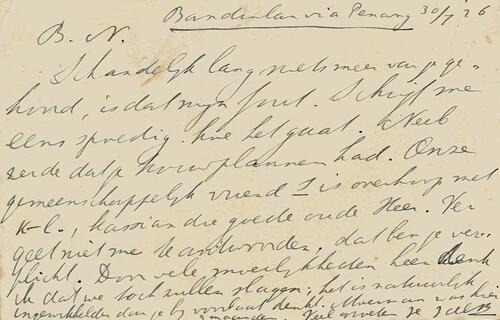 Bandarlan via Penang 30/7 26
B. N.
Schandelijk lang niets meer van je ge=
hoord, is dat mijn fout. Schrijf me
eens spoedig hoe het gaat. Neeb
zeide dat je trouwplannen had. Onze
gemeenschappelijk vriend I is overhoop met
K-l., kassian die goede oude Heer. Ver
geet niet me te antwoorden, dat ben je ver=
plicht. Door vele moeilijkheden heen denk
ik dat we toch zullen slagen; het is natuurlijk
ingewikkelder dan je bij voorbaat denkt. was hier
maanden. Veel groeten je